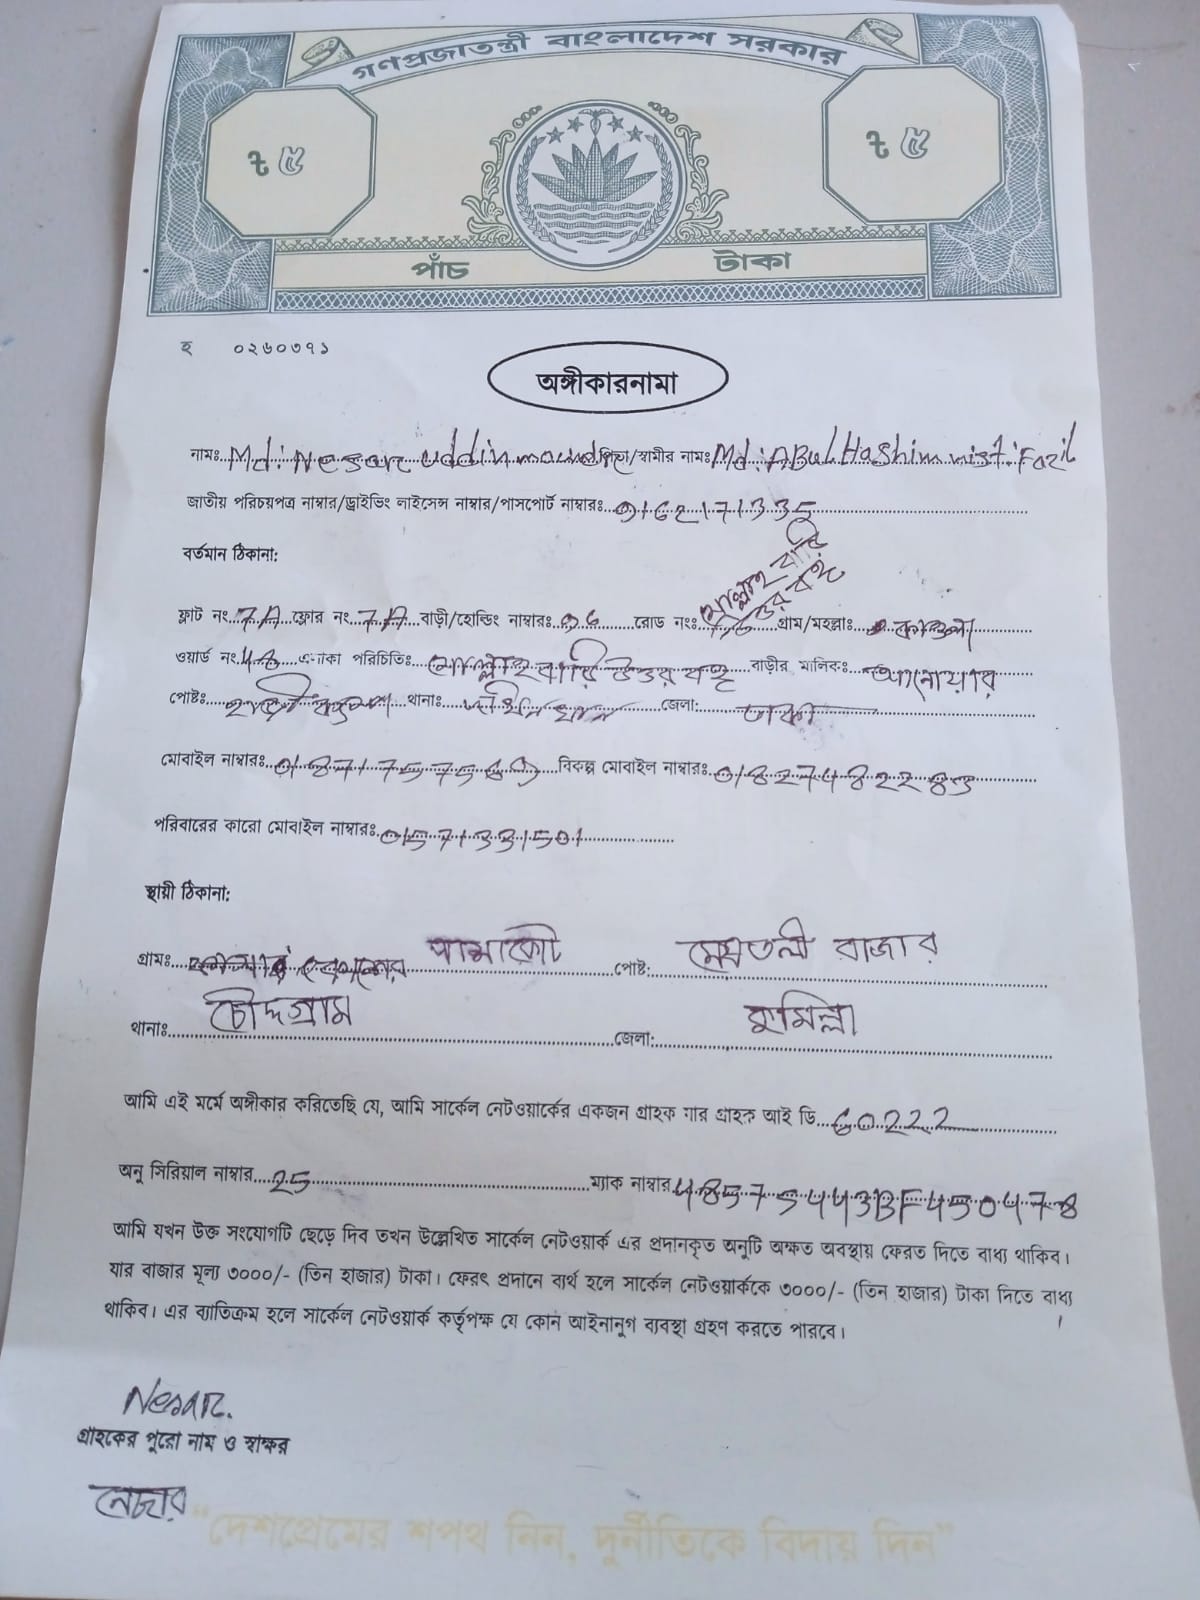 গণপ্রজাতন্ত্রী বাংলাদেশ সরকার
৳ ৫ ৳ ৫
পাঁচ টাকা
হ ০২৬০৩৭১
অঙ্গীকারনামা
নামঃ Md: Nesar uddin পিতা/স্বামীর নামঃ Md: ABul Hashim
জাতীয় পরিচয়পত্র নাম্বার/ড্রাইভিং লাইসেন্স নাম্বার/পাসপোর্ট নাম্বারঃ
বর্তমান ঠিকানা:
ফ্লাট নং 7A ফ্লোর নং 7A বাড়ী/হোল্ডিং নাম্বারঃ রোড নং: গ্রাম/মহল্লাঃ
ওয়ার্ড নং এলাকা পরিচিতিঃ মোল্লাহ বাড়ি উত্তর বাড়ীর মালিকঃ আনোয়ার
পোষ্টঃ থানাঃ জেলা: ঢাকা
মোবাইল নাম্বারঃ বিকল্প মোবাইল নাম্বারঃ
পরিবারের কারো মোবাইল নাম্বারঃ 01571331501
স্থায়ী ঠিকানা:
গ্রামঃ পোষ্ট: বাজার
থানাঃ চৌদ্দগ্রাম জেলা: কুমিল্লা
আমি এই মর্মে অঙ্গীকার করিতেছি যে, আমি সার্কেল নেটওয়ার্কের একজন গ্রাহক যার গ্রাহক আই ডি 60222
অনু সিরিয়াল নাম্বার 25 ম্যাক নাম্বার 48575443BF450478
আমি যখন উক্ত সংযোগটি ছেড়ে দিব তখন উল্লেখিত সার্কেল নেটওয়ার্ক এর প্রদানকৃত অনুটি অক্ষত অবস্থায় ফেরত দিতে বাধ্য থাকিব।
যার বাজার মূল্য ৩০০০/- (তিন হাজার) টাকা। ফেরৎ প্রদানে ব্যর্থ হলে সার্কেল নেটওয়ার্ককে ৩০০০/- (তিন হাজার) টাকা দিতে বাধ্য
থাকিব। এর ব্যাতিক্রম হলে সার্কেল নেটওয়ার্ক কর্তৃপক্ষ যে কোন আইনানুগ ব্যবস্থা গ্রহণ করতে পারবে।
Nesar.
গ্রাহকের পুরো নাম ও স্বাক্ষর
নেছার
"দেশপ্রেমের শপথ নিন, দুর্নীতিকে বিদায় দিন"